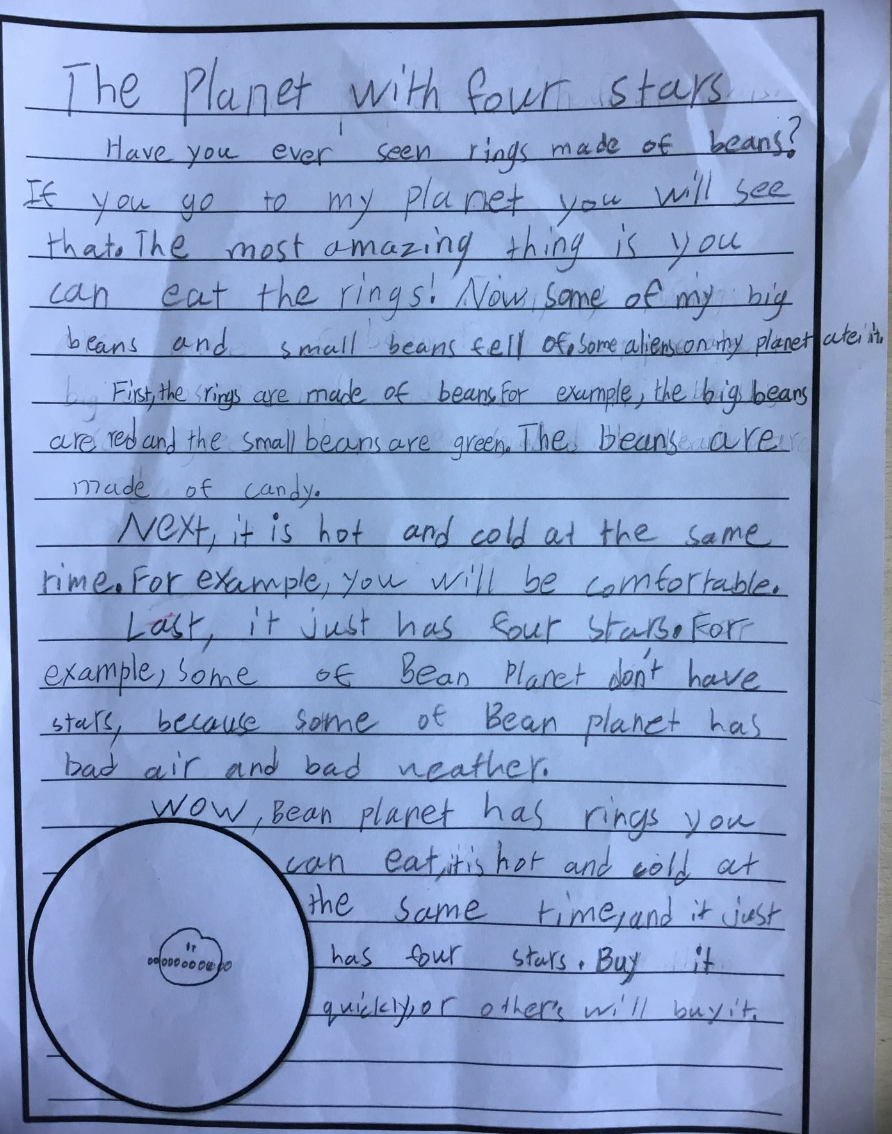 The Planet with four stars
Have you ever seen rings made of beans?
If you go to my planet you will see
that. The most amazing thing is you
can eat the rings! Now, some of my big
beans and small beans fell of. Some aliens on my planet ate it.
First, the rings are made of beans. For example, the big beans
are red and the small beans are green. The beans are
made of candy.
Next, it is hot and cold at the same
rime. For example, you will be comfortable.
Last, it just has four stars. For
example, some of Bean Planet don't have
stars, because some of Bean planet has
bad air and bad neather.
Wow, Bean planet has rings you
can eat, it is hot and cold at
the same time, and it just
has four stars. Buy it
quickly, or other's will buy it.